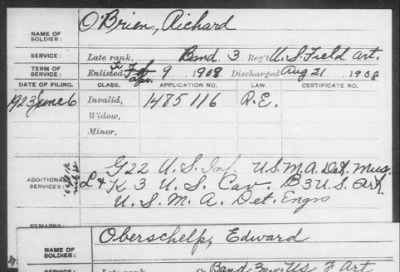 NAME OF SOLDIER: O'Brien, Richard
SERVICE: Late rank, Band 3 Reg't U. S. Field Art.
TERM OF SERVICE: Enlisted 9, 1908 Discharged Aug 21, 1908
DATE OF FILING. CLASS. APPLICATION NO. LAW. CERTIFICATE NO.
1923 June 6 Invalid, 1485116 R.E.
Widow,
Minor,
ADDITIONAL SERVICES: G 22 U. S. Inf. U.S.M.A. Det. Mus.
L & K 3 U. S. Cav. B 3 U. S. Art.
U. S. M. A. Det. Engrs
REMARKS:
NAME OF SOLDIER: Oberschelp, Edward
Late rank, Band 3 US F Art